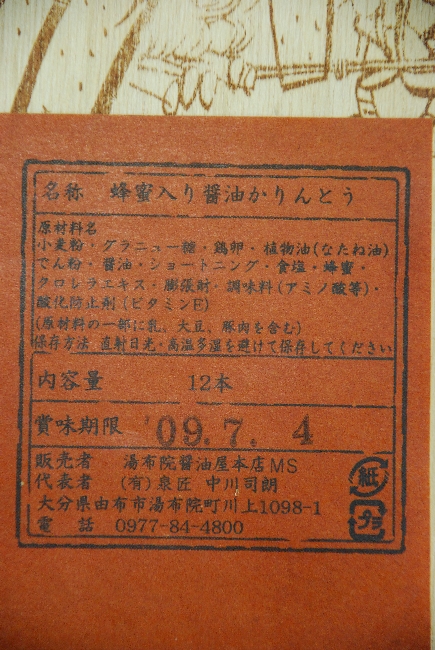 名称 蜂蜜入り醤油かりんとう
原材料名
小麦粉・グラニュー糖・鶏卵・植物油(なたね油)
でん粉・醤油・ショートニング・食塩・蜂蜜・
クロレラエキス・膨張剤・調味料(アミノ酸等)・
酸化防止剤(ビタミンE)
(原材料の一部に乳、大豆、豚肉を含む)
保存方法 直射日光・高温多湿を避けて保存してください
内容量 12本
賞味期限 '09.7. 4
販売者 湯布院醤油屋本店MS
代表者 (有)泉匠 中川司朗
大分県由布市湯布院町川上1098-1
電話 0977-84-4800
紙
プラ